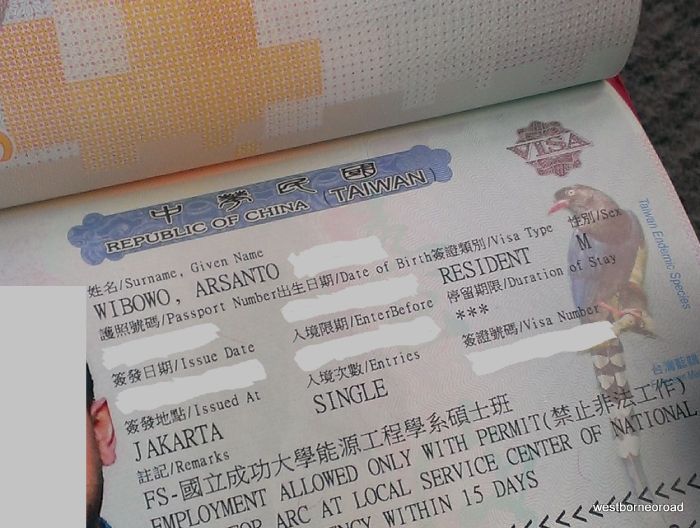 VISA
中華民國
REPUBLIC OF CHINA (TAIWAN)
姓名/Surname, Given Name
WIBOWO, ARSANTO
護照號碼/Passport Number
出生日期/Date of Birth
簽證類別/Visa Type
性別/Sex
RESIDENT
M
簽發日期/Issue Date
入境限期/EnterBefore
停留期限/Duration of Stay
***
簽發地點/Issued At
入境次數/Entries
簽證號碼/Visa Number
JAKARTA
SINGLE
註記/Remarks
FS-國立成功大學能源工程學系碩士班
EMPLOYMENT ALLOWED ONLY WITH PERMIT(禁止非法工作)
FOR ARC AT LOCAL SERVICE CENTER OF NATIONAL
WITHIN 15 DAYS
Taiwan Endemic Species
台灣藍鵲
westborneoroad